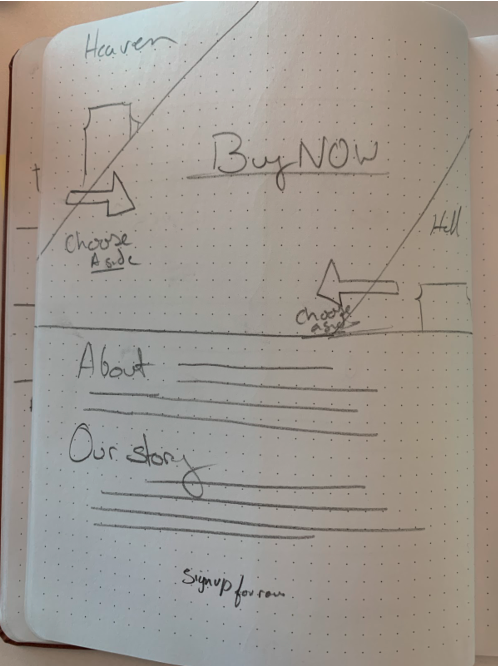 Heaven
Buy NOW
Choose
A side
Hell
Choose
a side
About
Our story
Sign up for